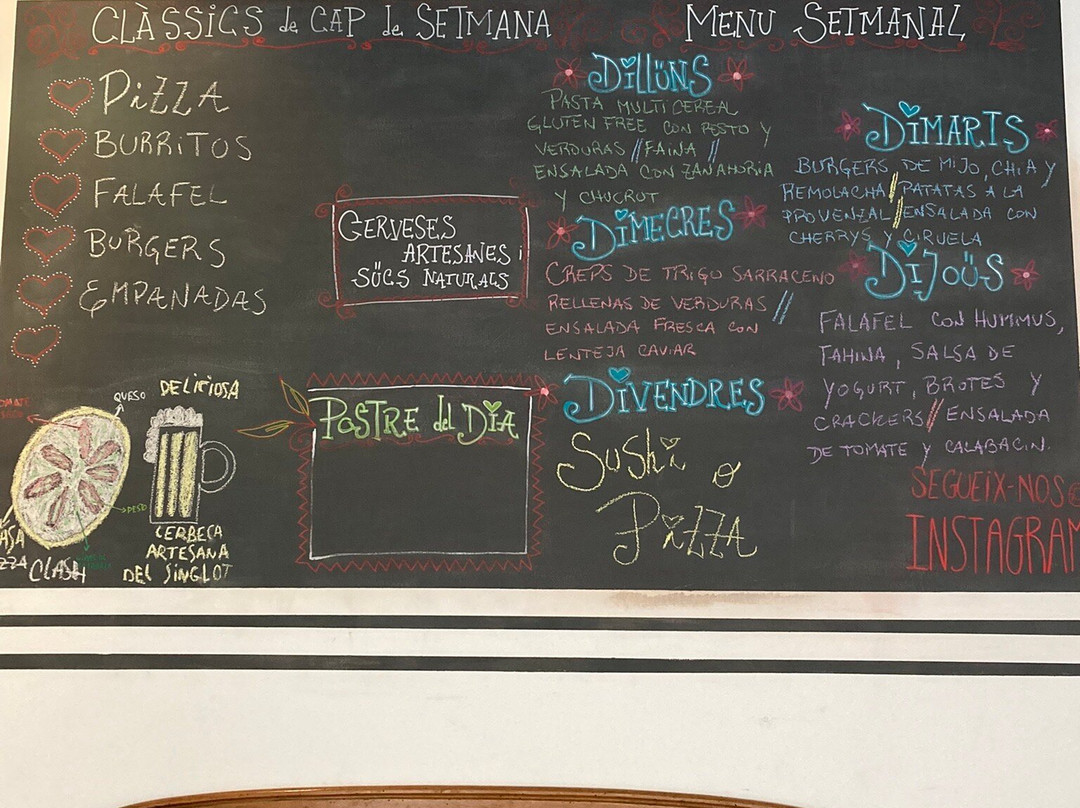 CLÀSSICS de CAP de SETMANA
PiZZA
BURRiTOS
FALAFEL
BURGERS
EMPANADAS
CERVESES
ARTESANES i
SÜCS NATURALS
DELICIOSA
QUESO
PESTO
CLASH
CERBEÇA
ARTESANA
DEL SiNGLOT
POSTRE del DÍA
MENU SETMANAL
DiLLÜNS
PASTA MULTICEREAL
GLUTEN FREE CON PESTO Y
VERDURAS // FAINA //
ENSALADA CON ZANAHORIA
Y CHUCRUT
DiMARTS
BURGERS DE MIJO, CHIA Y
REMOLACHA // PATATAS A LA
PROVENZAL // ENSALADA CON
CHERRYS Y CIRUELA
DiMECRES
CREPS DE TRIGO SARRACENO
RELLENAS DE VERDURAS //
ENSALADA FRESCA CON
LENTEJA CAVIAR
DiJOÜS
FALAFEL CON HUMMUS,
TAHINA, SALSA DE
YOGURT, BROTES Y
CRACKERS // ENSALADA
DE TOMATE Y CALABACIN.
DiVENDRES
SUSHi Ø
PiZZA
SEGUEIX-NOS@
INSTAGRAM